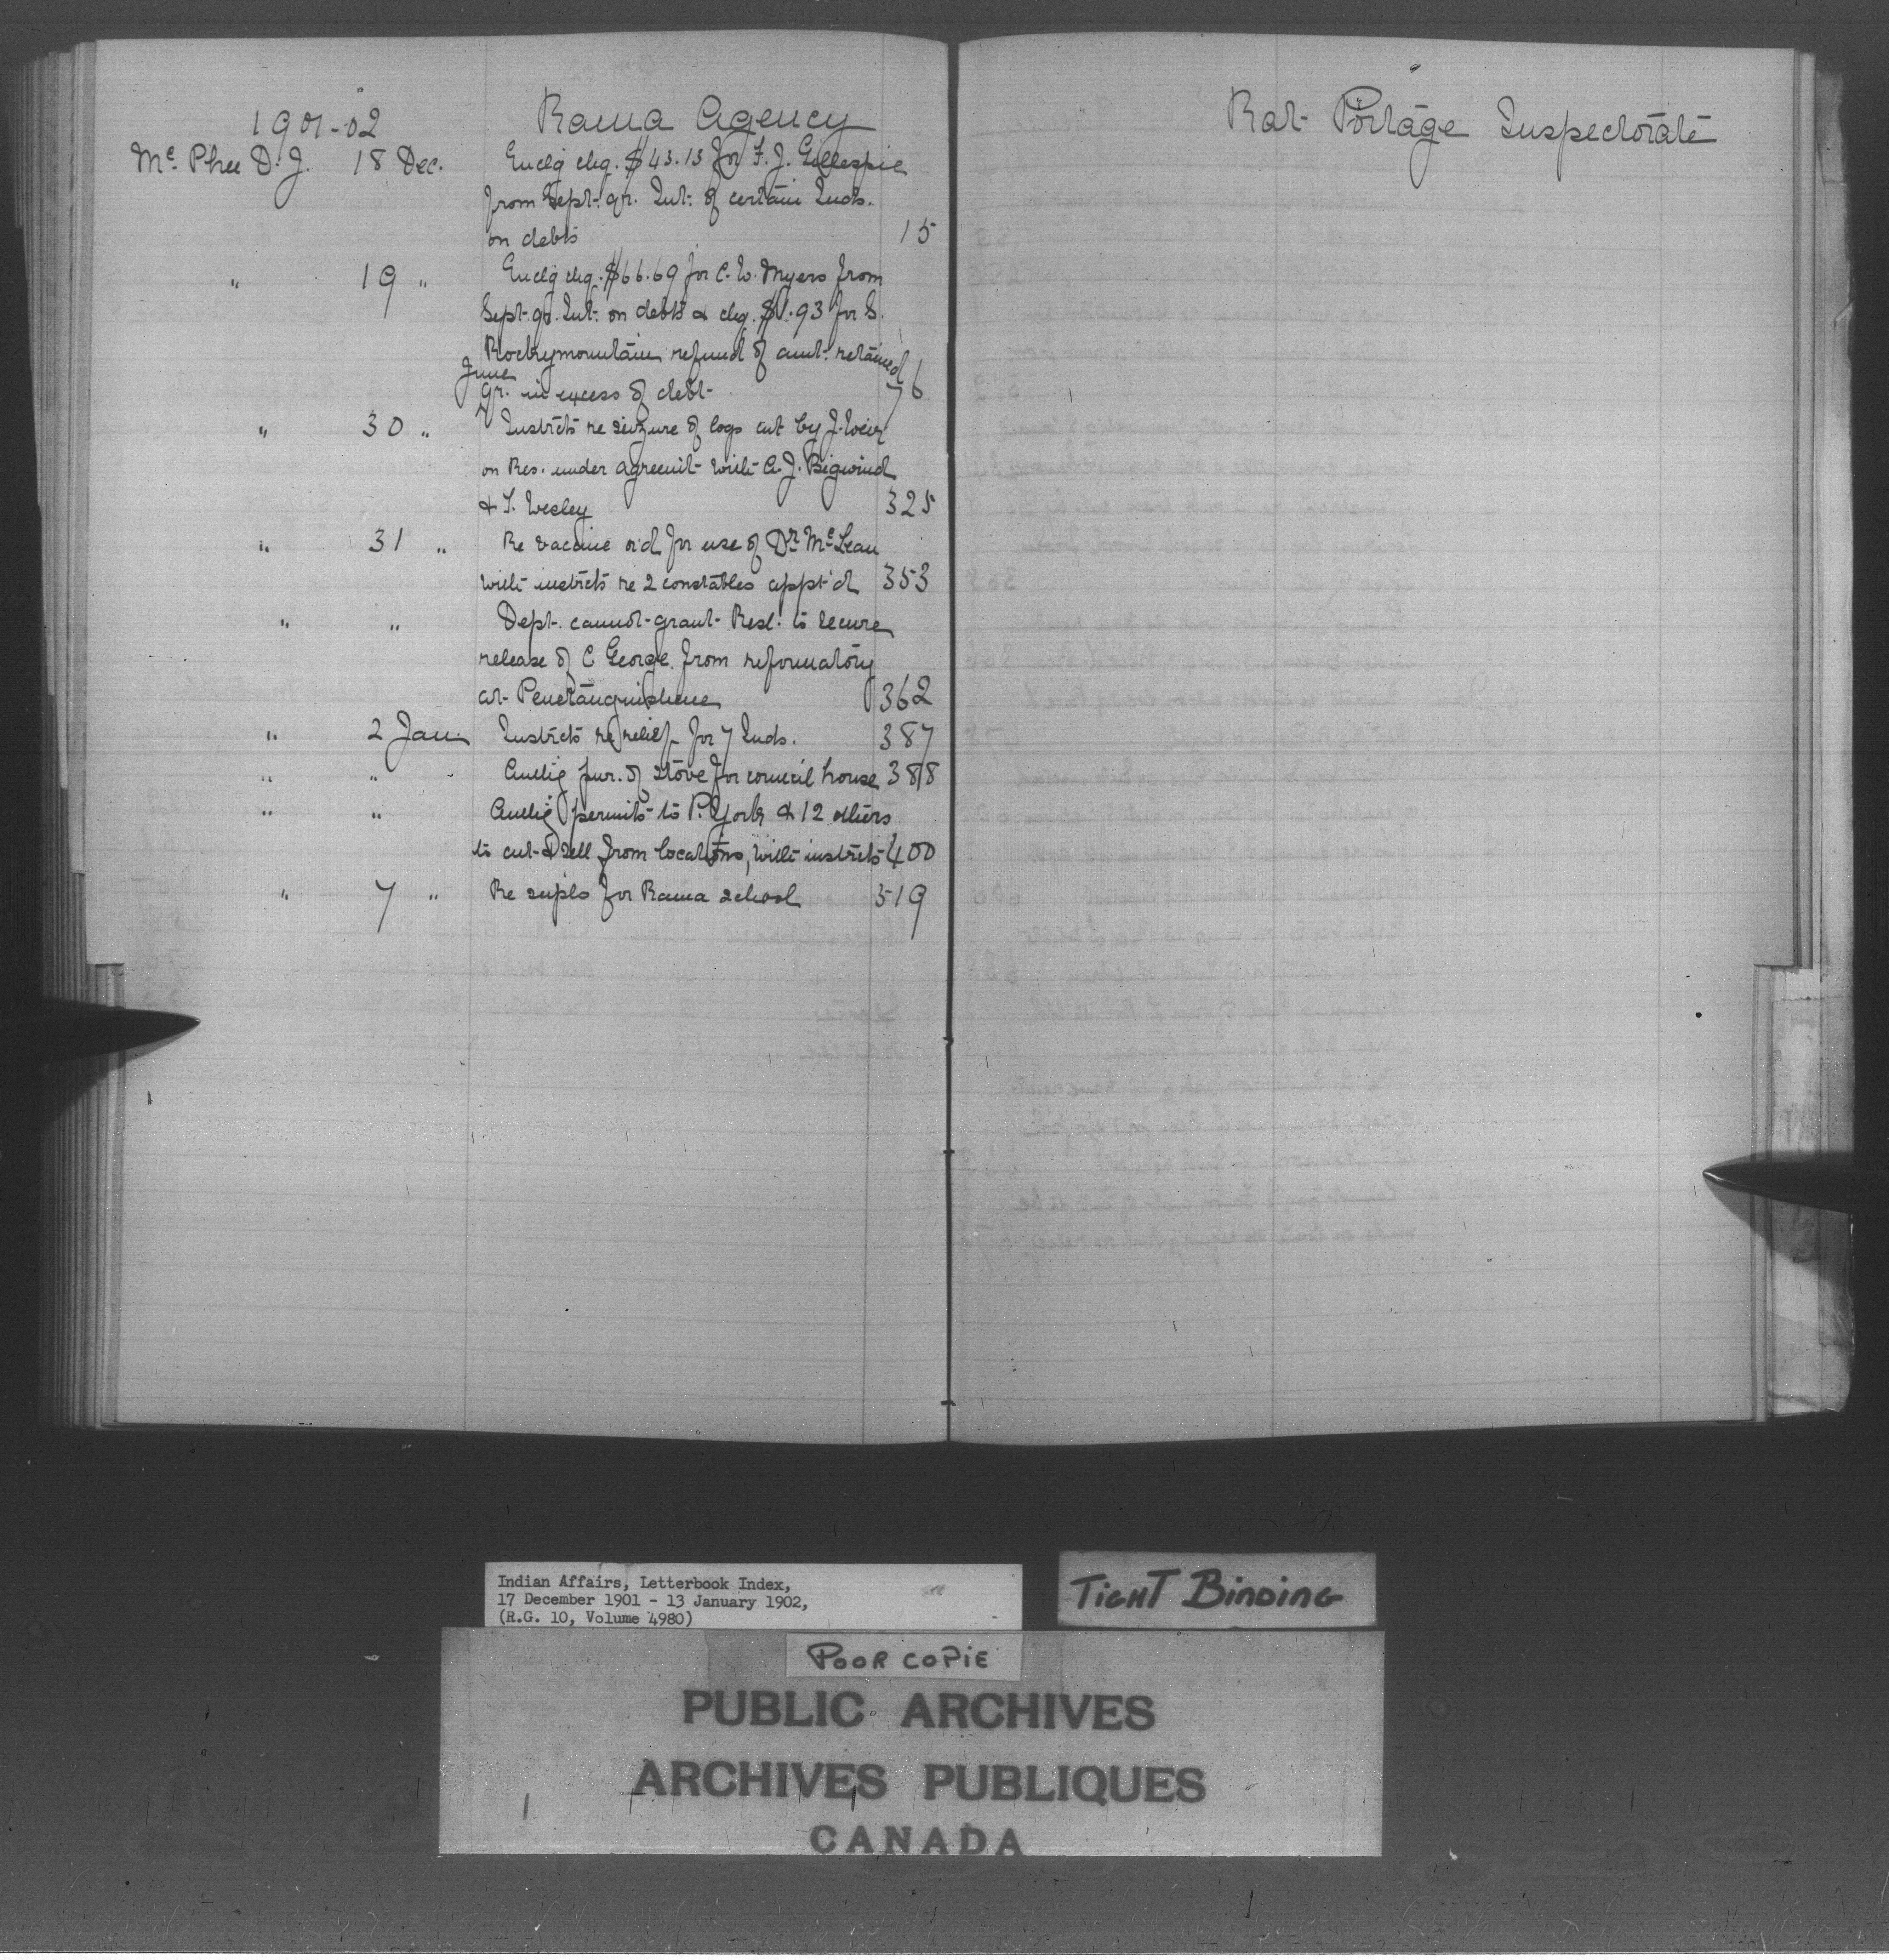 1901-02 Rama Agency
Mc Phee D. J. 18 Dec. Enclg chq. $43.13 for F. J. Gillespie
from Sept. qr. Int. of certain Inds.
on debts 15
" 19 " Enclg chq. $66.69 for C. W. Myers from
Sept. qr. Int. on debts & chq. $1.93 for S.
Rockymountain refund of amt. retained
June
qr. in excess of debt 76
" 30 " Instrcts re seizure of logs cut by J. Weir
on Res. under agreemt with A. J. Bigwind
& T. Wesley 325
" 31 " Re vaccine o'd for use of Dr. McLean
with instrcts re 2 constables appt'd 353
" " Dept. cannot grant Resl. to secure
release of C George from reformatory
at Penetanguishene 362
" 2 Jan. Instrcts re relief for 7 Inds. 387
" " Authg pur. of stove for council house 388
" " Authg permits to P. York & 12 others
to cut & sell from locations, with instrcts 400
" 7 " Re supls for Rama school 519
Rat Portage Inspectorate
Indian Affairs, Letterbook Index,
17 December 1901 - 13 January 1902,
(R.G. 10, Volume 4980)
TIGHT BINDING
POOR COPIE
PUBLIC ARCHIVES
ARCHIVES PUBLIQUES
CANADA